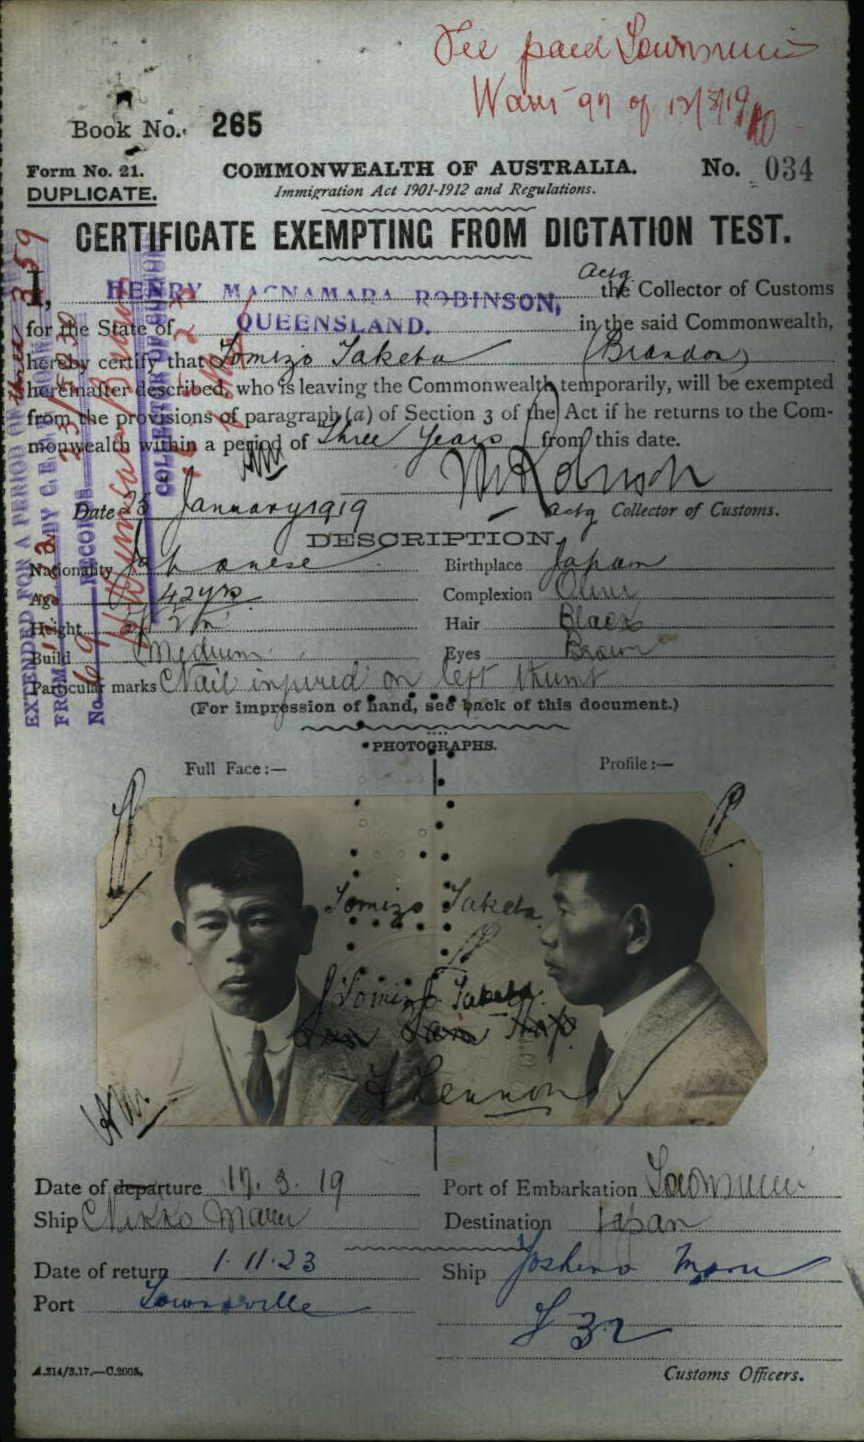 Fee paid Townsville
Warr 97 of 12/3/19
Book No. 265
Form No. 21.
COMMONWEALTH OF AUSTRALIA.
No. 034
DUPLICATE.
Immigration Act 1901-1912 and Regulations.
CERTIFICATE EXEMPTING FROM DICTATION TEST.
I, HENRY MACNAMARA ROBINSON, Actg the Collector of Customs
for the State of QUEENSLAND. in the said Commonwealth,
hereby certify that Tomizo Taketa (Brandon)
hereinafter described, who is leaving the Commonwealth temporarily, will be exempted
from the provisions of paragraph (a) of Section 3 of the Act if he returns to the Com-
monwealth within a period of Three Years from this date.
Date 25 January 1919
Actg Collector of Customs.
DESCRIPTION
Nationality Japanese
Birthplace Japan
Age 42 yrs
Complexion Olive
Height 5ft 2 in
Hair Black
Build Medium
Eyes Brown
Particular marks Nail injured on left thumb
(For impression of hand, see back of this document.)
PHOTOGRAPHS.
Full Face:—
Profile:—
Tomizo Taketa
Tomizo Taketa
J Lennon
Date of departure 17. 3. 19
Port of Embarkation Townsville
Ship Nikko Maru
Destination Japan
Date of return 1. 11. 23
Ship Yoshino Maru
Port Townsville
A.214/3.17.—C.2005.
Customs Officers.
EXTENDED FOR A PERIOD OF
COLLECTOR OF CUSTOMS